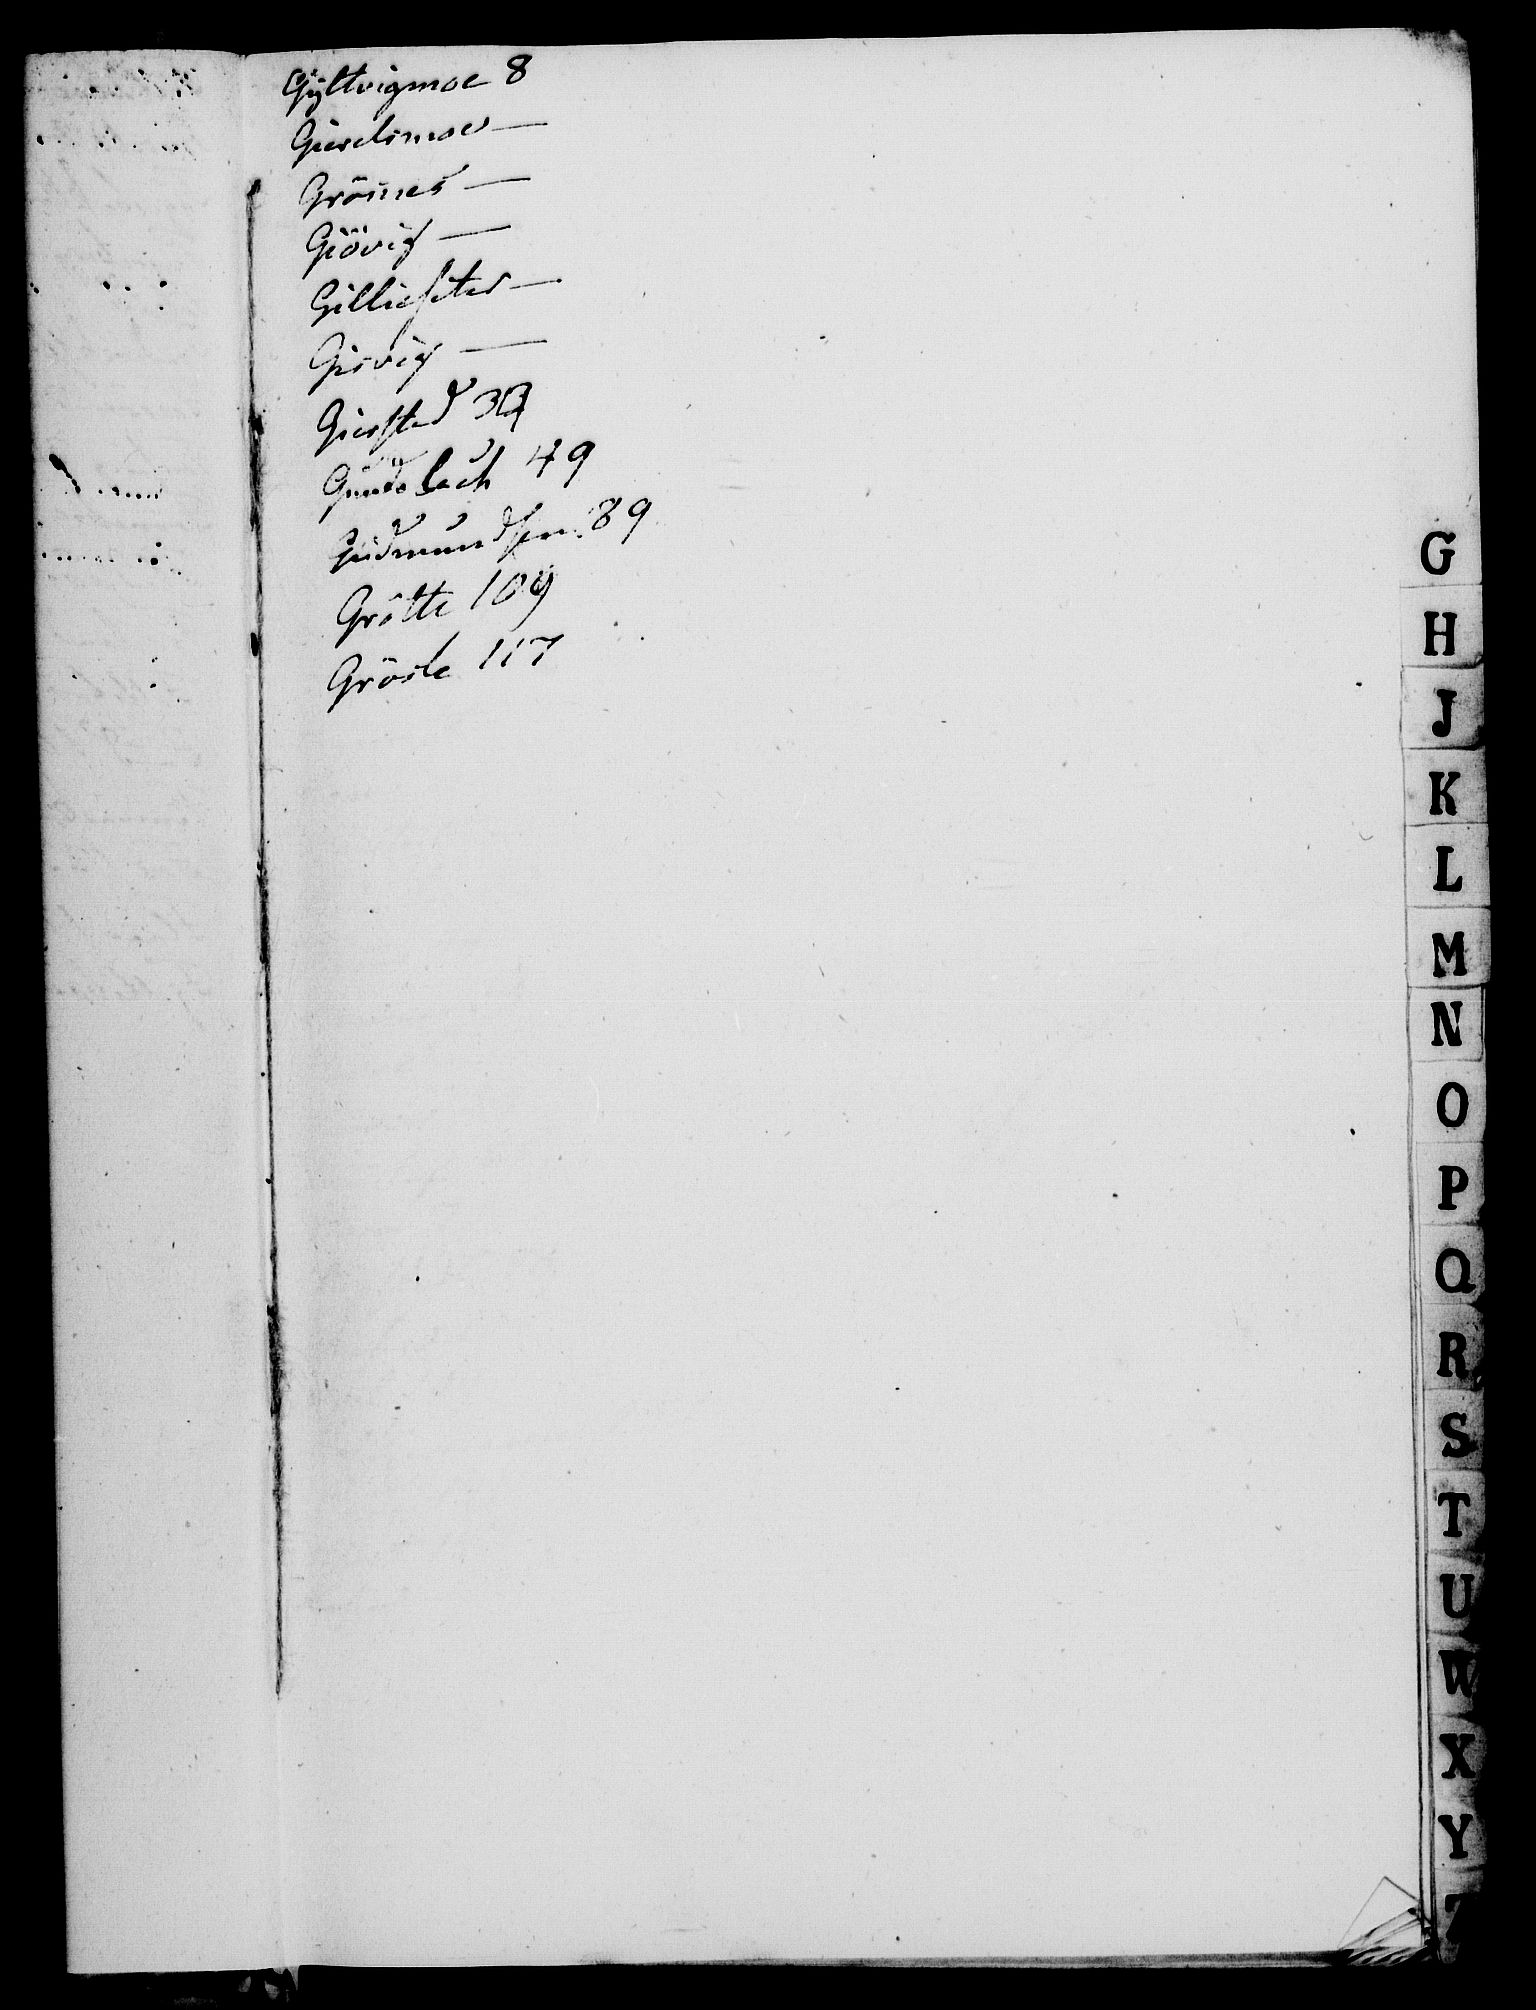 Gÿltvigmoe 8
Gierdsmoe —
Grösnes —
Giövig —
Gilliesæter —
Gisvig —
Giersted 32
Gundelach 49
Gudmundsen 89
Grötte 109
Gröste 117
G
H
J
K
L
M
N
O
P
Q
R
S
T
U
W
X
Y